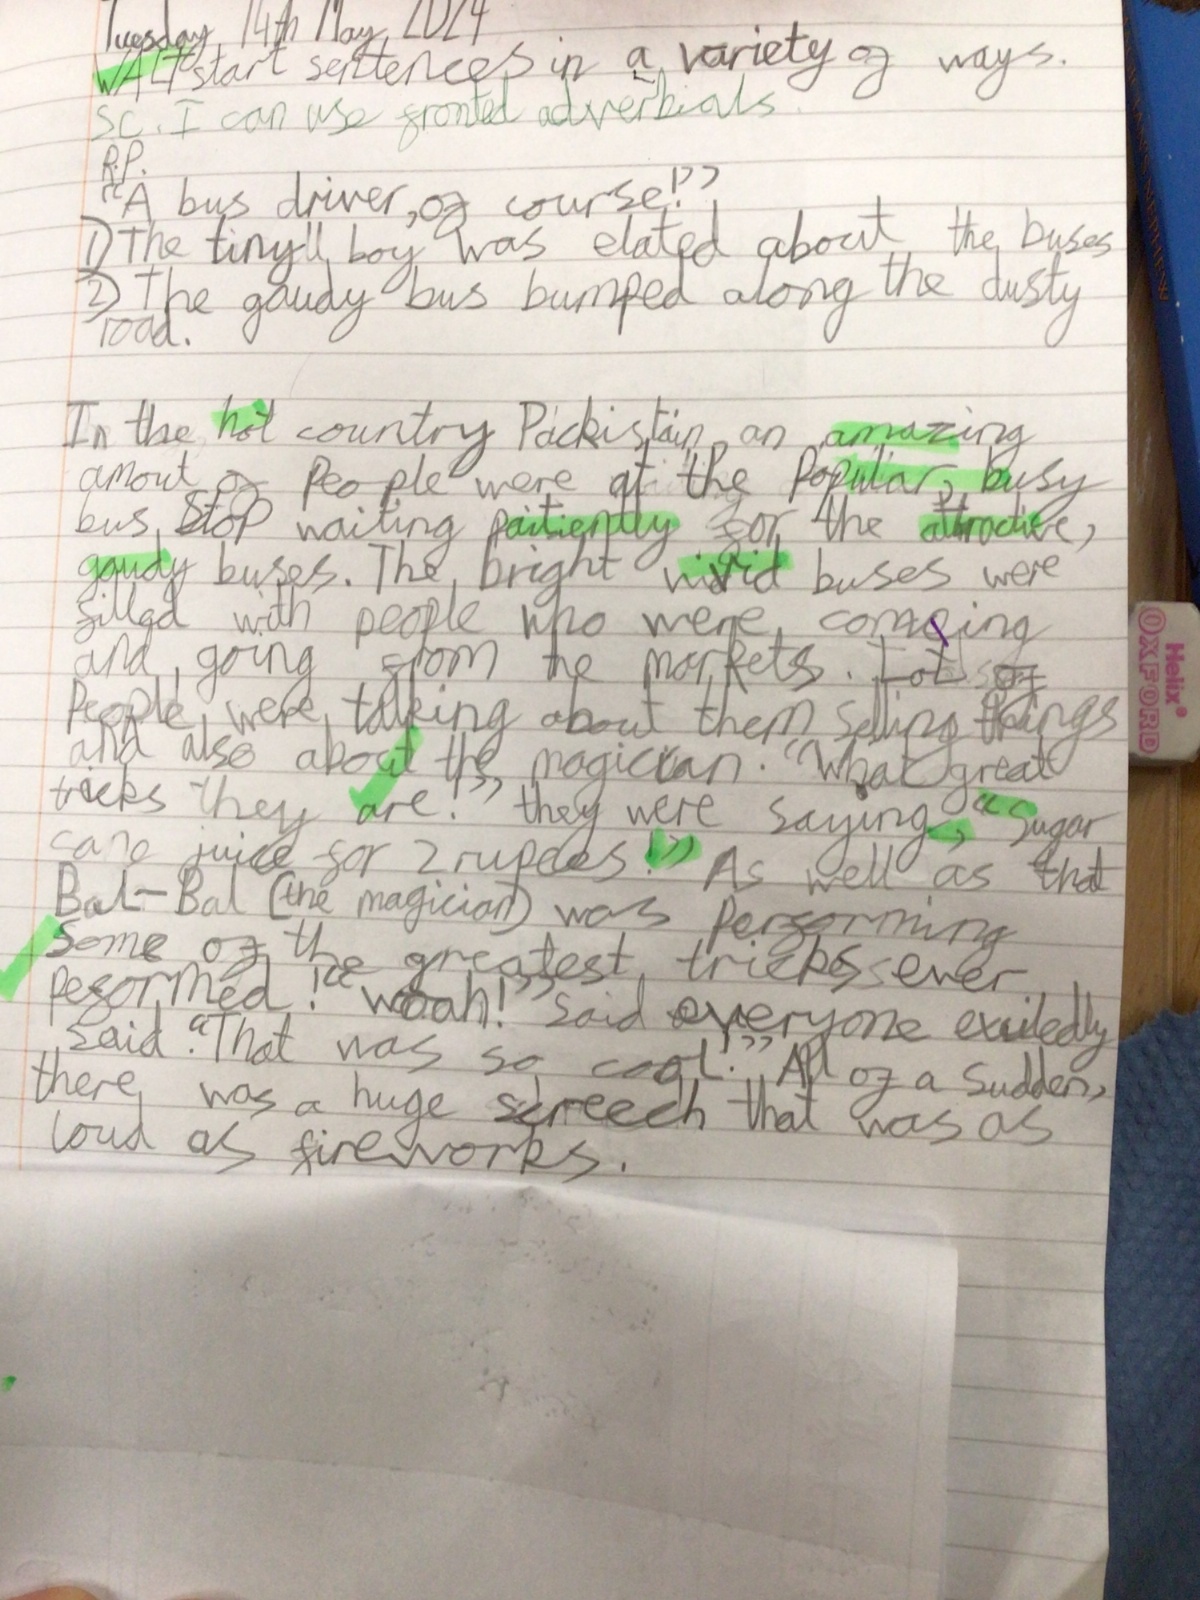 Tuesday 14th May 2024
WALT start sentences in a variety of ways.
SC. I can use fronted adverbials
R.P.
"A bus driver, of course!"
1) The tiny boy was elated about the buses
2) The gaudy bus bumped along the dusty
road.
In the hot country Packistain an amazing
amout of people were at the popular, busy
bus stop waiting paitiently for the attractive,
gaudy buses. The bright vivid buses were
filled with people who were coming
and going from the markets. Lots of
people were talking about them selling things
and also about the magician. "What great
tricks they are!" they were saying, "Sugar
cane juice for 2 rupees!" As well as that
Bal-Bal (the magician) was performing
some of the greatest tricks ever
peformed! "woah!" said everyone exitedly
said. "That was so cool!" All of a sudden,
there was a huge screech that was as
loud as fireworks.
Helix®
OXFORD